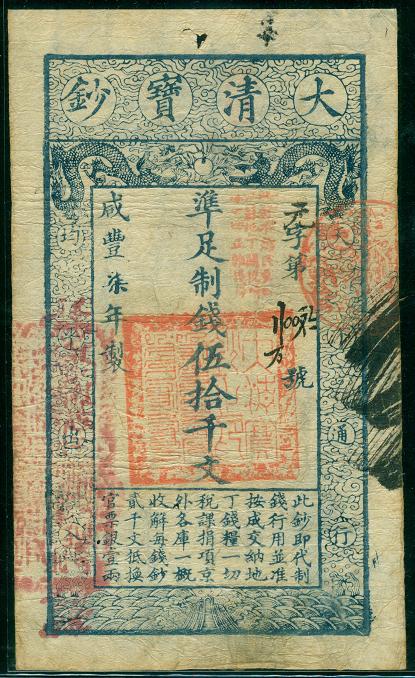 大清寶鈔
天下通行
字第號
準足制錢伍拾千文
咸豐柒年製
均平出入
此鈔即代制
錢行用並准
按成交納地
丁錢糧一切
稅課捐項京
外各庫一概
收解每錢鈔
貳千文抵換
官票銀壹兩